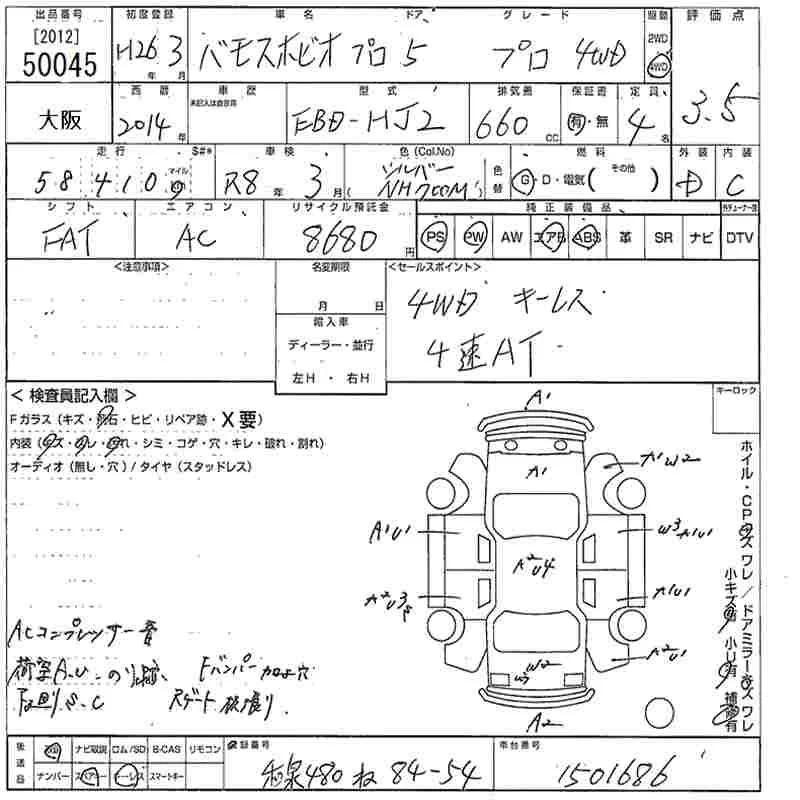 出品番号 初度登録 車名 ドア グレード 駆動 評価点
[2012] 50045 H26年 3月 バモスホビオ プロ 5 プロ 4WD 2WD 4WD 3.5
西暦 車歴 型式 排気量 保証書 定員
大阪 2014年 未記入は自家用 EBD-HJ2 660cc 有・無 4名
走行 $#* 車検 色(Col.No) 色替 燃料 外装 内装
58,410 マイル km R8年 3月 シルバー (NH700M) G・D・電気( その他 ) D C
シフト エアコン リサイクル預託金 純正装備品
FAT AC 8680円 PS PW AW エアB ABS 革 SR ナビ DTV
<注意事項> 名変期限 <セールスポイント>
月 日
輸入車
ディーラー・並行
左H・右H
4WD キーレス
4速AT
<検査員記入欄> キーロック
Fガラス(キズ・飛石・ヒビ・リペア跡・X要)
内装(キズ・汚れ・スレ・シミ・コゲ・穴・キレ・破れ・割れ)
オーディオ(無し・穴)/タイヤ(スタッドレス)
A1
A1
A1W2
A1U1
W3
A1U1
A2U4
A2U3
A1U1
A2U1
W2
W3
A2
ACコンプレッサー音
荷室A.U. Fバンパー 穴
下回りS.C Rゲート
ホイル・CPキズワレ/ドアミラーキズワレ
小キズ有 小U有 補修有
後送品 ナビ取説 ロム/SD B-CAS リモコン 登録番号 車台番号
ナンバー スペアキー キーレス スマートキー 和泉480 ね 84-54 1501686